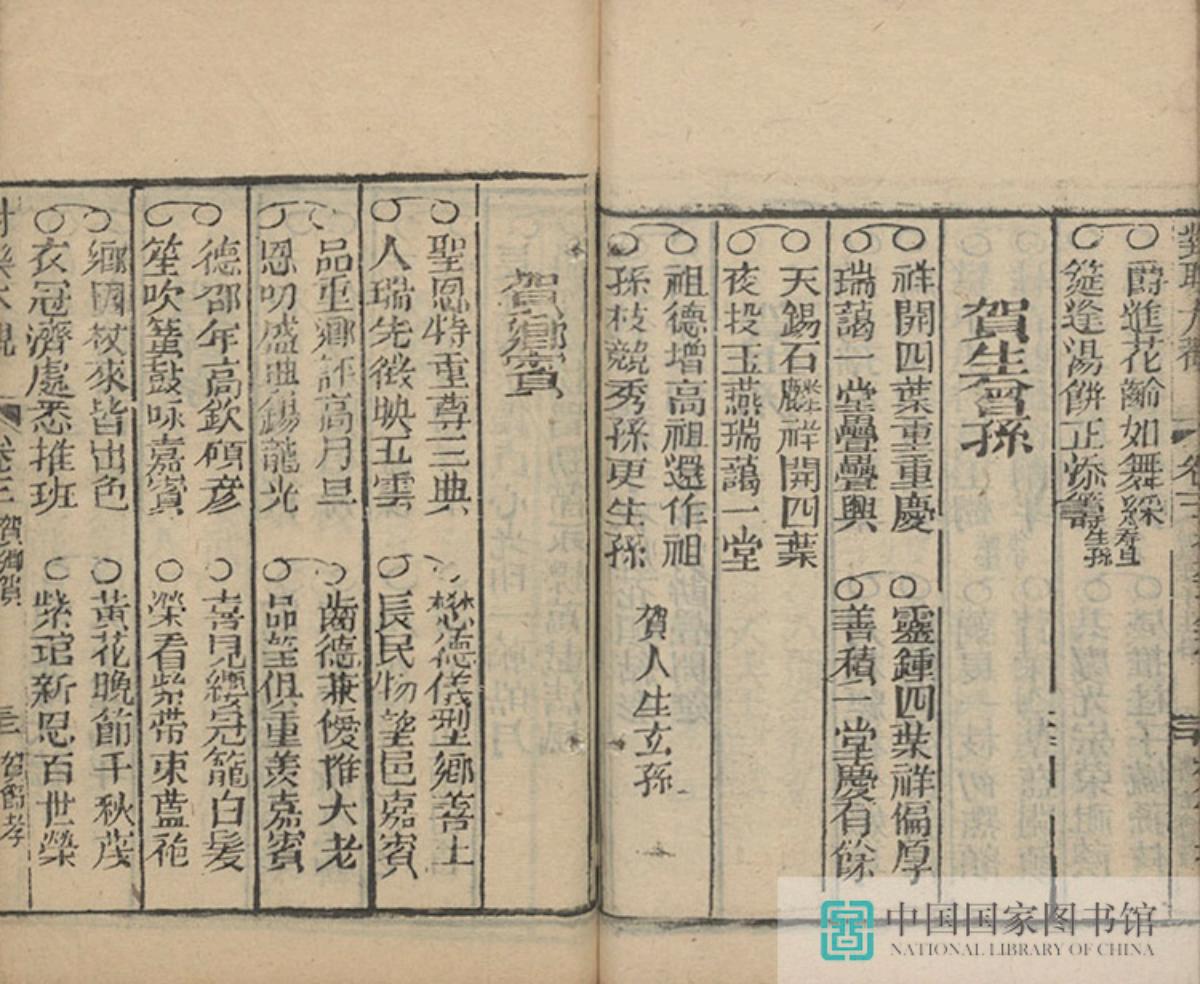 爵進花觴如舞綵
筵逢湯餅正添籌
賀生曾孫
祥開四葉重重慶
瑞藹一堂疊疊興
靈鍾四葉祥偏厚
善積一堂慶有餘
天錫石麟祥開四葉
夜投玉燕瑞藹一堂
祖德增高祖還作祖
孫枝競秀孫更生孫
賀人生玄孫
賀鄉賓
聖恩特重尊三典
人瑞先徵映五雲
懋德儀型鄉善士
長民物望邑嘉賓
品重鄉評高月旦
恩叨盛典錫龍光
齒德兼優惟大老
品望俱重羨嘉賓
德邵年高欽碩彦
笙吹簧鼓咏嘉賓
喜見纓冠籠白髮
榮看紫帶束藍袍
鄉國杖來皆出色
衣冠濟處悉推班
黃花晚節千秋茂
紫誥新恩百世榮
卷三
賀鄉賓
中国国家图书馆
NATIONAL LIBRARY OF CHINA